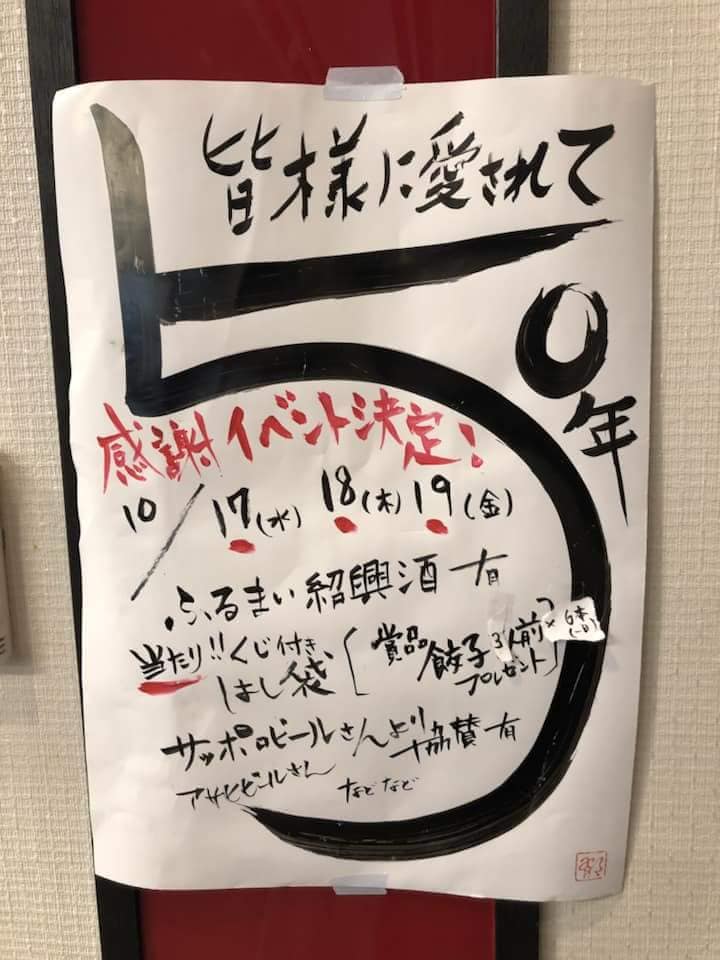 皆様に愛されて
50年
感謝イベント決定!
10/17(水) 18(木) 19(金)
ふるまい紹興酒 有
当たり!!くじ付き
はし袋
賞品
餃子3人前
プレゼント
サッポロビールさんより協賛有
アサヒビールさん
などなど